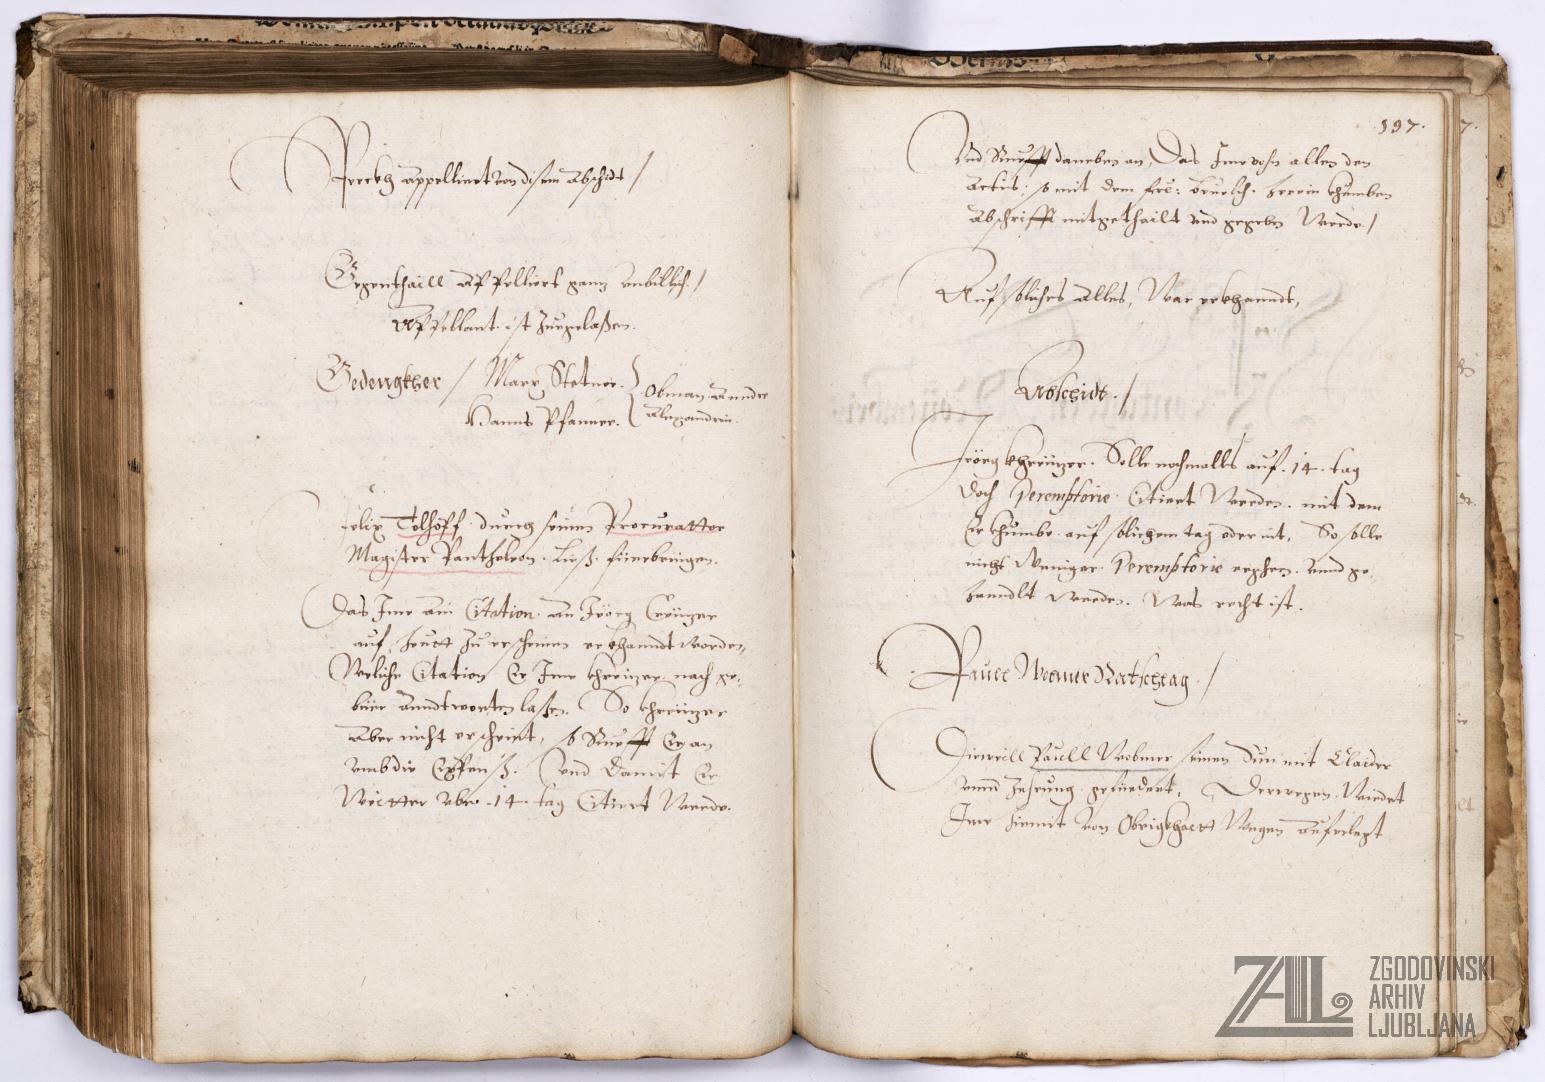 appelliert von disem Abschidt /
Gegenthaill appelliert ganz unbillich. /
Appellant ist zuegelassen.
Gedengkher / Marx Stetner.
Hanns Pfanner.
Obman Anndre
Alexandrin.
Felix durch seinen Procurator
Magister Pantheleon. Ließ fürebringen.
Das Ime ain Citation an Jörg Creüzer
auf heutt zu erscheinen erkhanndt worden,
Weliche Citation Er Ime Khreüzer nach ge-
bür Anndtworten lassen. So Khreüzer
Aber nicht erscheint, so Ruefft Er an
umb die Expenß. Und damit Er
Weitter uber .14. tag Citiert Werde.
197.
Und Ruefft daneben an, Das Ime von allen den
Actis. so mit dem herein khumben
Abschrifft mitgethailt und gegeben Werde. /
Auf soliches Alles, War erkhanndt,
Abschidt. /
Jörg Khreüzer. Solle nochmalls auf .14. tag
doch Peremptorie Citiert Werden. mit dem
Er khumbe auf solichem tag oder nit, So solle
nicht Weniger Peremptorie ergehen. unnd ge-
hanndlt werden. Was recht ist.
Paull Webmer Ratschlag. /
Dieweill Paull Webmer seinen Sun mit Claider
unnd Zehrung gefuedert, Derwegen Wierdet
Ime hiemit von Obrigkhaitt Wegen aufferlegt
ZAL
ZGODOVINSKI
ARHIV
LJUBLJANA